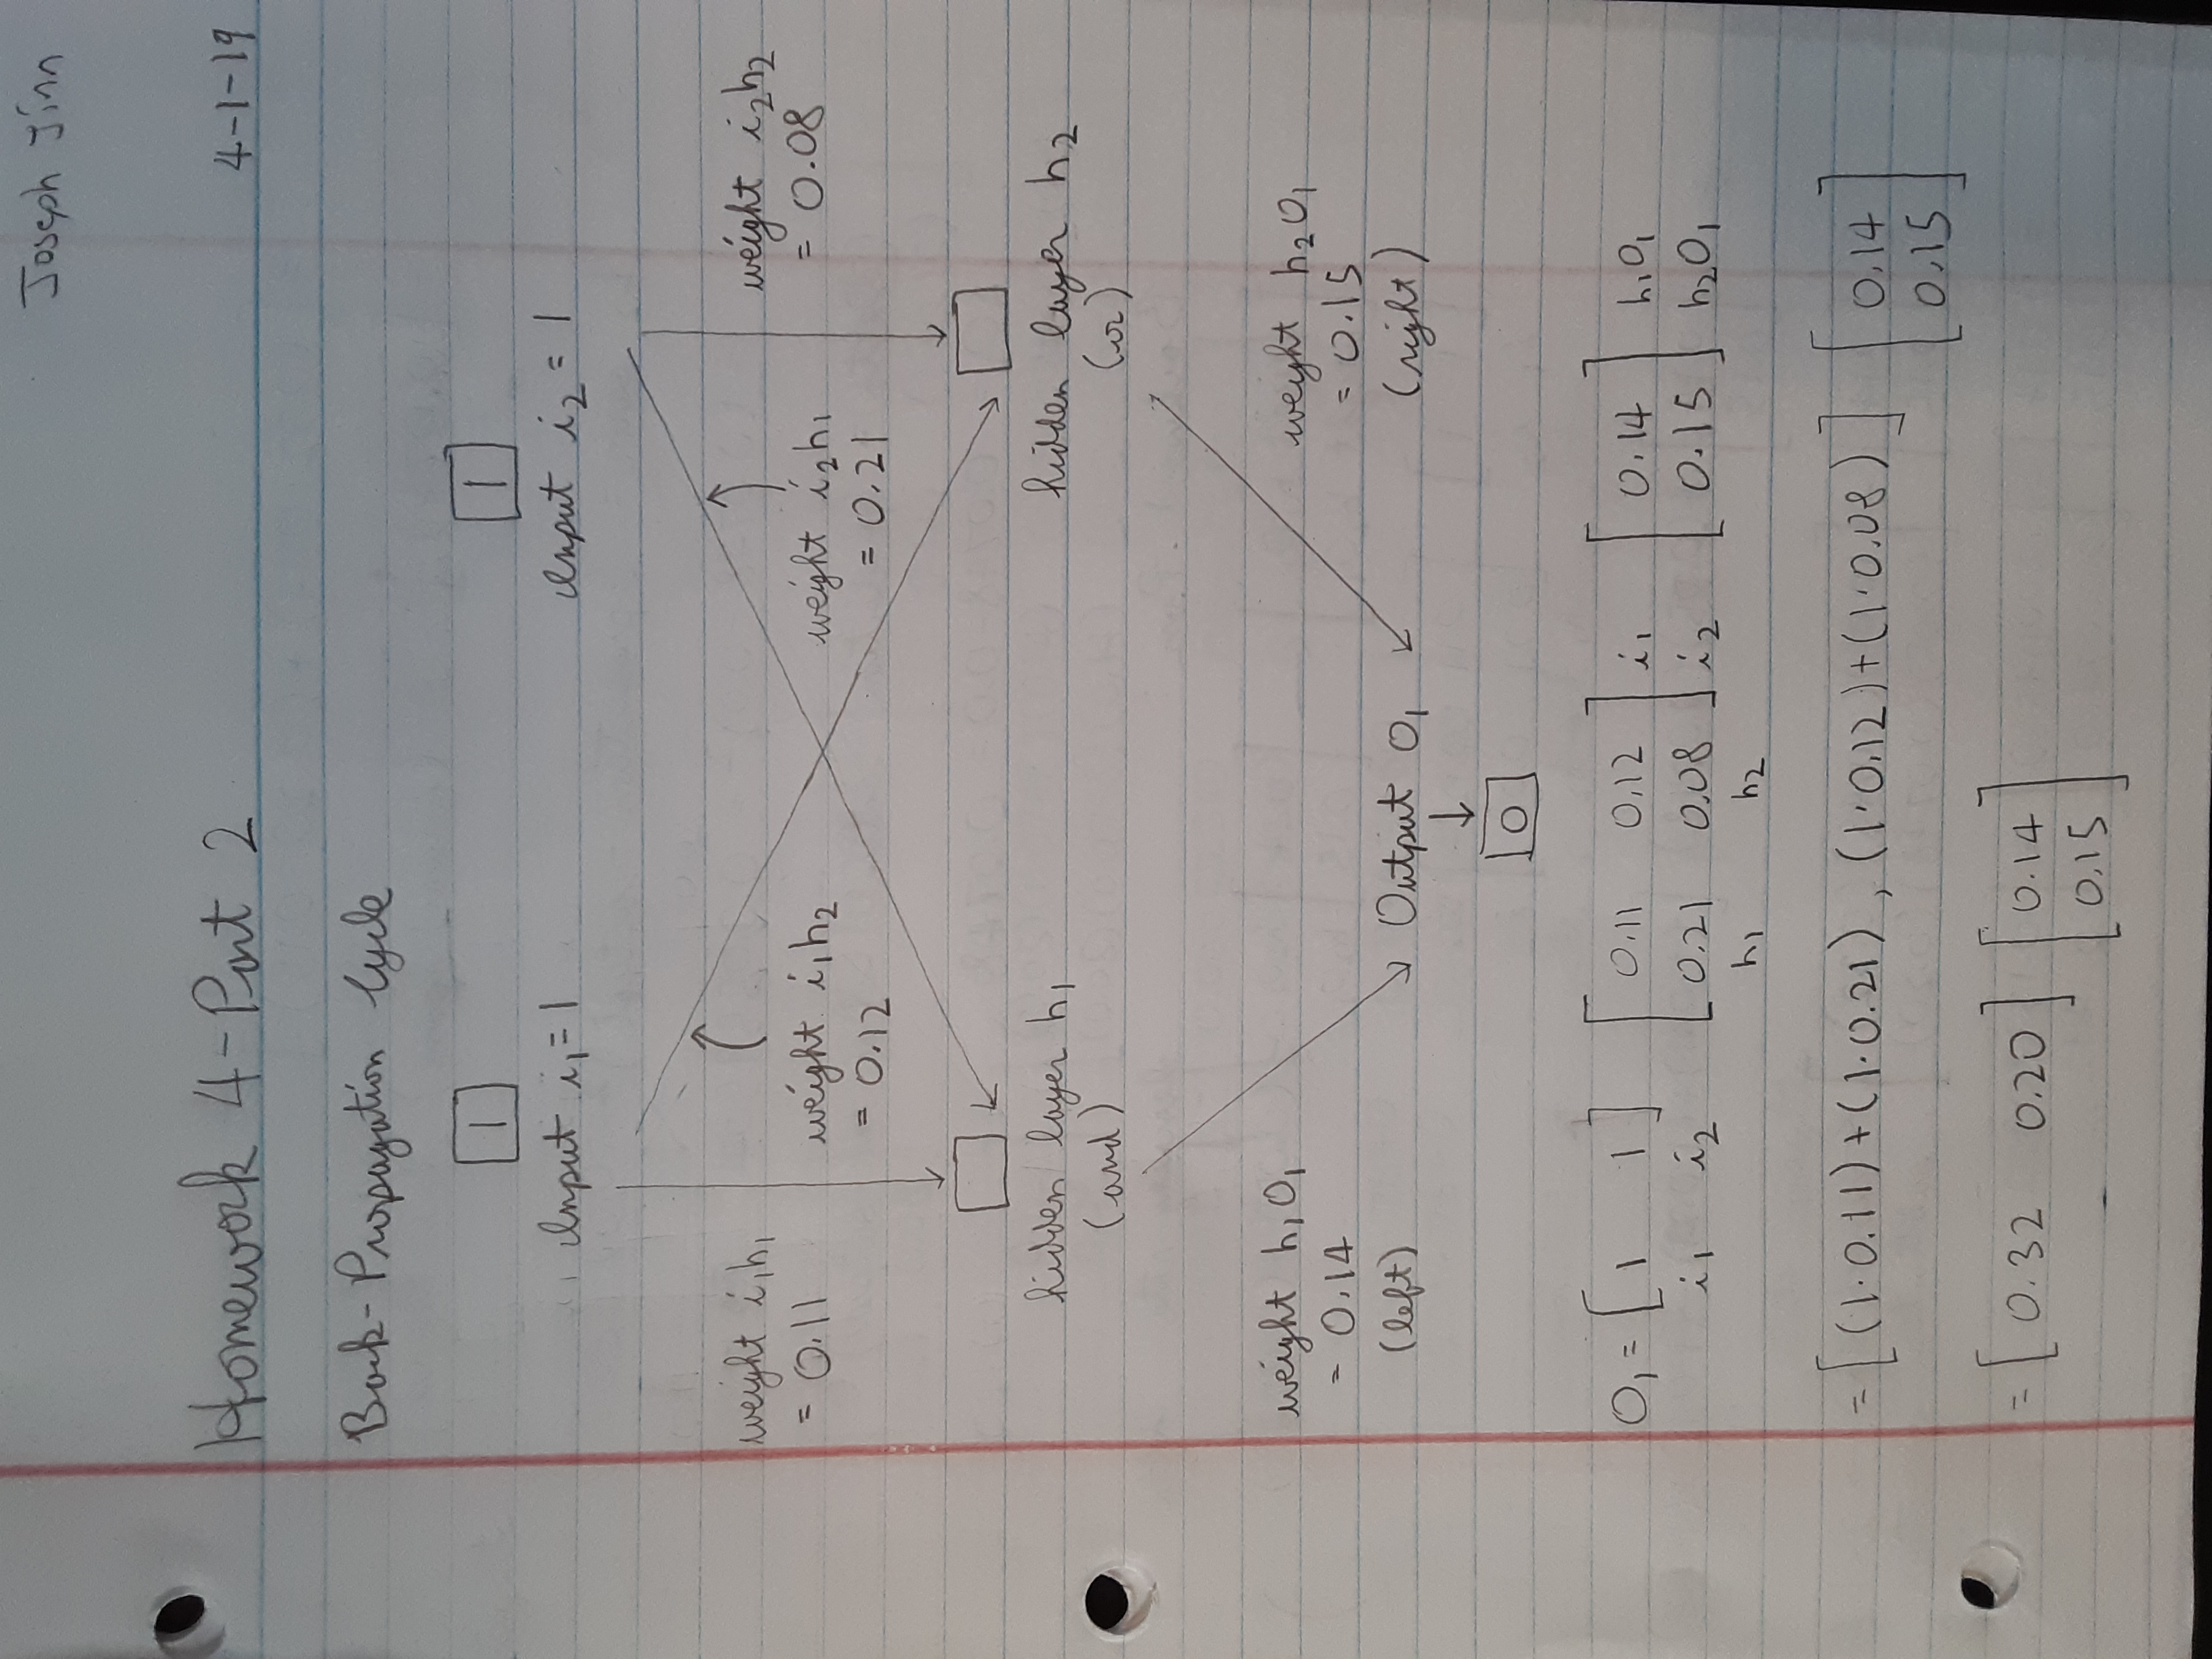 Joseph Jinn
Homework 4-Part 2 4-1-19
Back-Propagation Cycle
1 1
Input i₁=1 Input i₂ = 1
weight i₁h₁ = 0.11
weight i₁h₂ = 0.12
weight i₂h₁ = 0.21
weight i₂h₂ = 0.08
hidden layer h₁ hidden layer h₂
(and) (or)
weight h₁O₁ weight h₂O₁
= 0.14 = 0.15
(left) Output O₁ (right)
0
O₁ = [ 1 1 ] [ 0.11 0.12 ] i₁ [ 0.14 ] h₁O₁
i₁ i₂ [ 0.21 0.08 ] i₂ [ 0.15 ] h₂O₁
h₁ h₂
= [(1·0.11)+(1·0.21), (1·0.12)+(1·0.08)] [ 0.14
0.15 ]
= [ 0.32 0.20 ] [ 0.14
0.15 ]